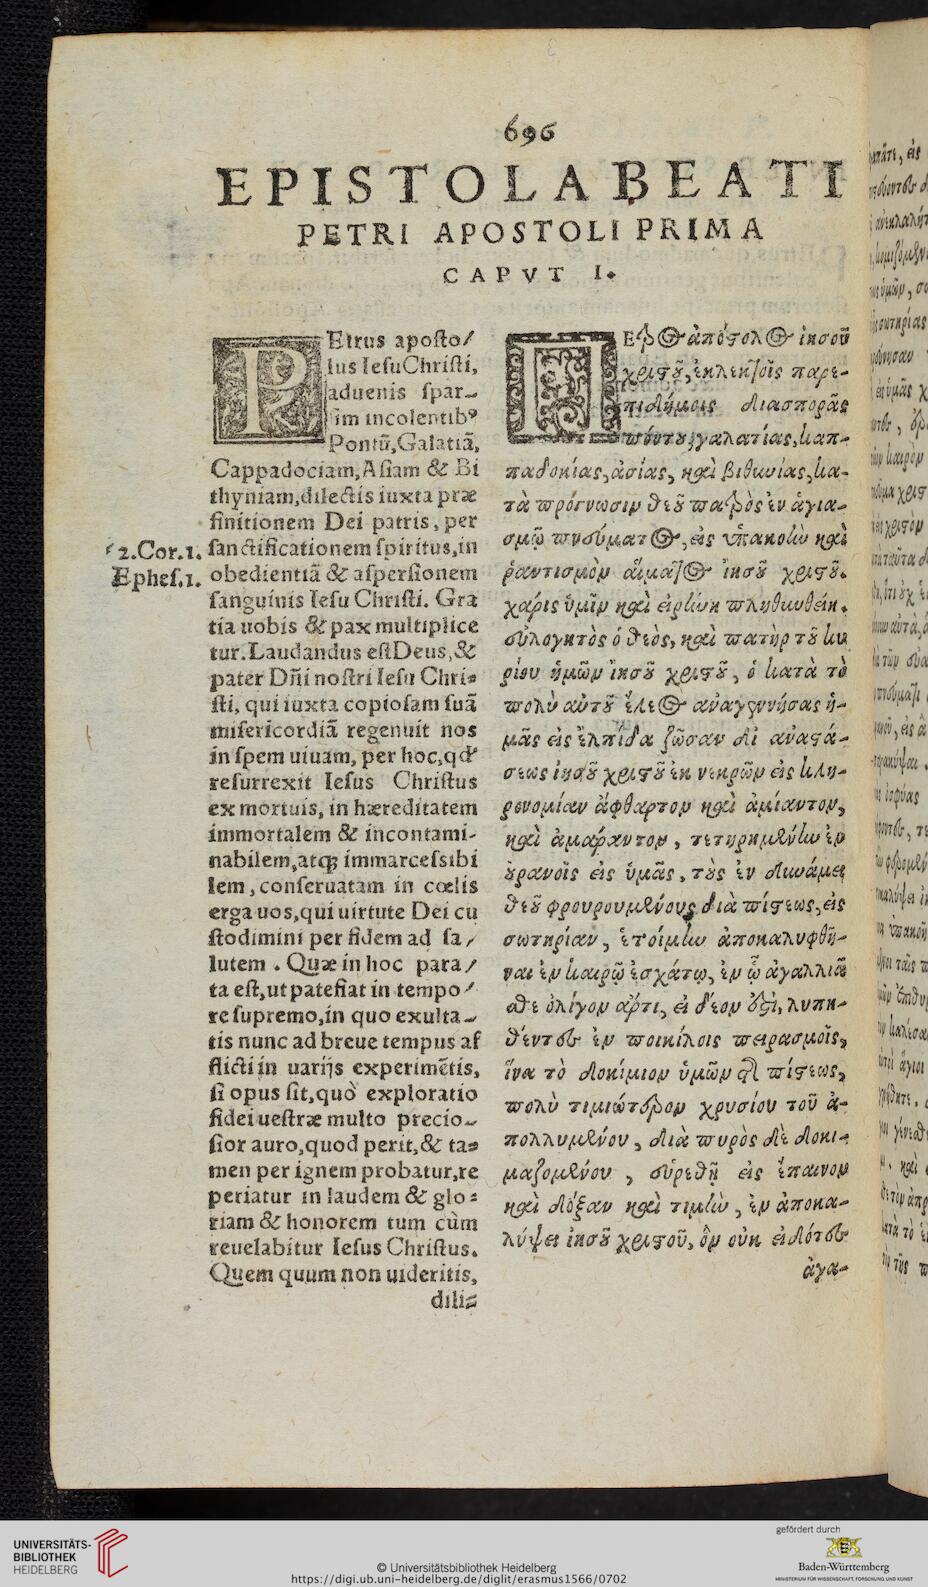 696
EPISTOLA BEATI
PETRI APOSTOLI PRIMA
CAPVT I.
PEtrus aposto/
lus Iesu Christi,
aduenis spar-
sim incolentibꝰ
Pontũ, Galatiã,
Cappadociam, Asiam & Bi
thyniam, dilectis iuxta præ
finitionem Dei patris, per
sanctificationem spiritus, in
obedientiã & aspersionem
sanguinis Iesu Christi. Gra
tia uobis & pax multiplice
tur. Laudandus est Deus, &
pater Dñi nostri Iesu Chri-
sti, qui iuxta copiosam suã
misericordiã regenuit nos
in spem uiuam, per hoc, qđ
resurrexit Iesus Christus
ex mortuis, in hæreditatem
immortalem & incontami-
nabilem, atqꝫ immarcessibi
lem, conseruatam in cœlis
erga uos, qui uirtute Dei cu
stodimini per fidem ad sa/
lutem. Quæ in hoc para/
ta est, ut patefiat in tempo/
re supremo, in quo exulta-
tis nunc ad breue tempus af
flicti in uarijs experimẽtis,
si opus sit, quò exploratio
fidei uestræ multo precio-
sior auro, quod perit, & ta-
men per ignem probatur, re
periatur in laudem & glo-
riam & honorem tum cùm
reuelabitur Iesus Christus.
Quem quum non uideritis,
dili-
2.Cor.1.
Ephes.1.
ΠΕτρος ἀπόστολος ἰησοῦ
χριστοῦ, ἐκλεκτοῖς παρε-
πιδήμοις διασπορᾶς
πόντου, γαλατίας, καπ-
παδοκίας, ἀσίας, καὶ βιθυνίας, κα-
τὰ πρόγνωσιν θεοῦ πατρὸς ἐν ἁγια-
σμῷ πνεύματος, εἰς ὑπακοὴν καὶ
ῥαντισμὸν αἵματος ἰησοῦ χριστοῦ.
χάρις ὑμῖν καὶ εἰρήνη πληθυνθείη.
εὐλογητὸς ὁ θεὸς, καὶ πατὴρ τοῦ κυ
ρίου ἡμῶν ἰησοῦ χριστοῦ, ὁ κατὰ τὸ
πολὺ αὐτοῦ ἔλεος ἀναγεννήσας ἡ-
μᾶς εἰς ἐλπίδα ζῶσαν δι ἀναστά-
σεως ἰησοῦ χριστοῦ ἐκ νεκρῶν εἰς κλη-
ρονομίαν ἄφθαρτον καὶ ἀμίαντον,
καὶ ἀμάραντον, τετηρημένην ἐν
οὐρανοῖς εἰς ὑμᾶς, τοὺς ἐν δυνάμει
θεοῦ φρουρουμένους διὰ πίστεως, εἰς
σωτηρίαν, ἑτοίμην ἀποκαλυφθῆ-
ναι ἐν καιρῷ ἐσχάτῳ, ἐν ᾧ ἀγαλλιᾶ
σθε ὀλίγον ἄρτι, εἰ δέον ἐστὶ, λυπη-
θέντες ἐν ποικίλοις πειρασμοῖς,
ἵνα τὸ δοκίμιον ὑμῶν τῆς πίστεως,
πολὺ τιμιώτερον χρυσίου τοῦ ἀ-
πολλυμένου, διὰ πυρὸς δὲ δοκι-
μαζομένου, εὑρεθῇ εἰς ἔπαινον
καὶ δόξαν καὶ τιμὴν, ἐν ἀποκα-
λύψει ἰησοῦ χριστοῦ, ὃν οὐκ εἰδότες
ἀγα-
UNIVERSITÄTS-
BIBLIOTHEK
HEIDELBERG
© Universitätsbibliothek Heidelberg
https://digi.ub.uni-heidelberg.de/diglit/erasmus1566/0702
gefördert durch
Baden-Württemberg
MINISTERIUM FÜR WISSENSCHAFT, FORSCHUNG UND KUNST